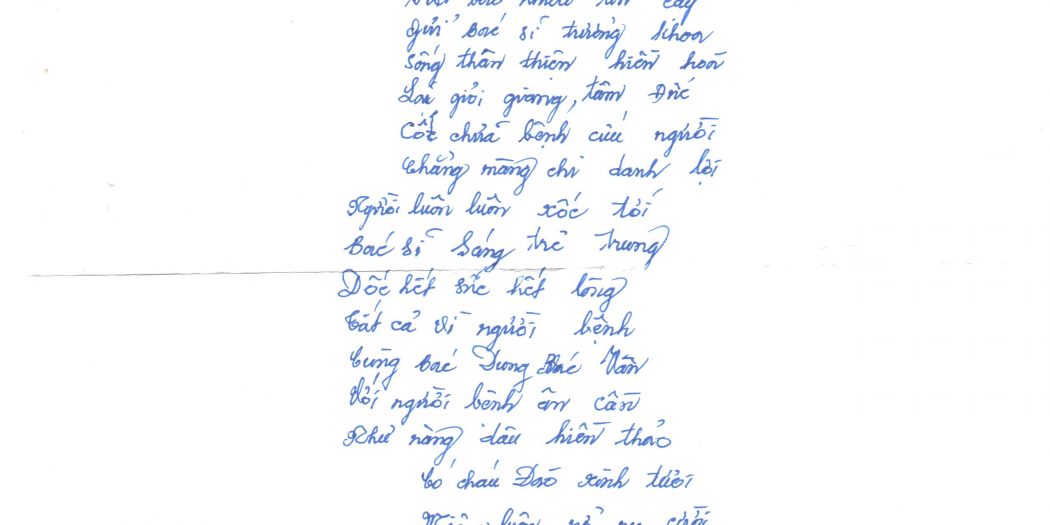 gửi Bác sĩ trưởng khoa
Sống thân thiện hiền hoà
Lại giỏi giang, tâm Đức
Cốt chữa bệnh cứu người
Chẳng màng chi danh lợi
Người luôn luôn xốc tới
Bác sĩ Sáng trẻ trung
Dốc hết sức hết lòng
Tất cả vì người bệnh
Cùng bác Dung Bác Vân
Với người bệnh ân cần
Như nàng dâu hiền thảo
Có cháu Đào xinh tươi
luôn nở nụ cười